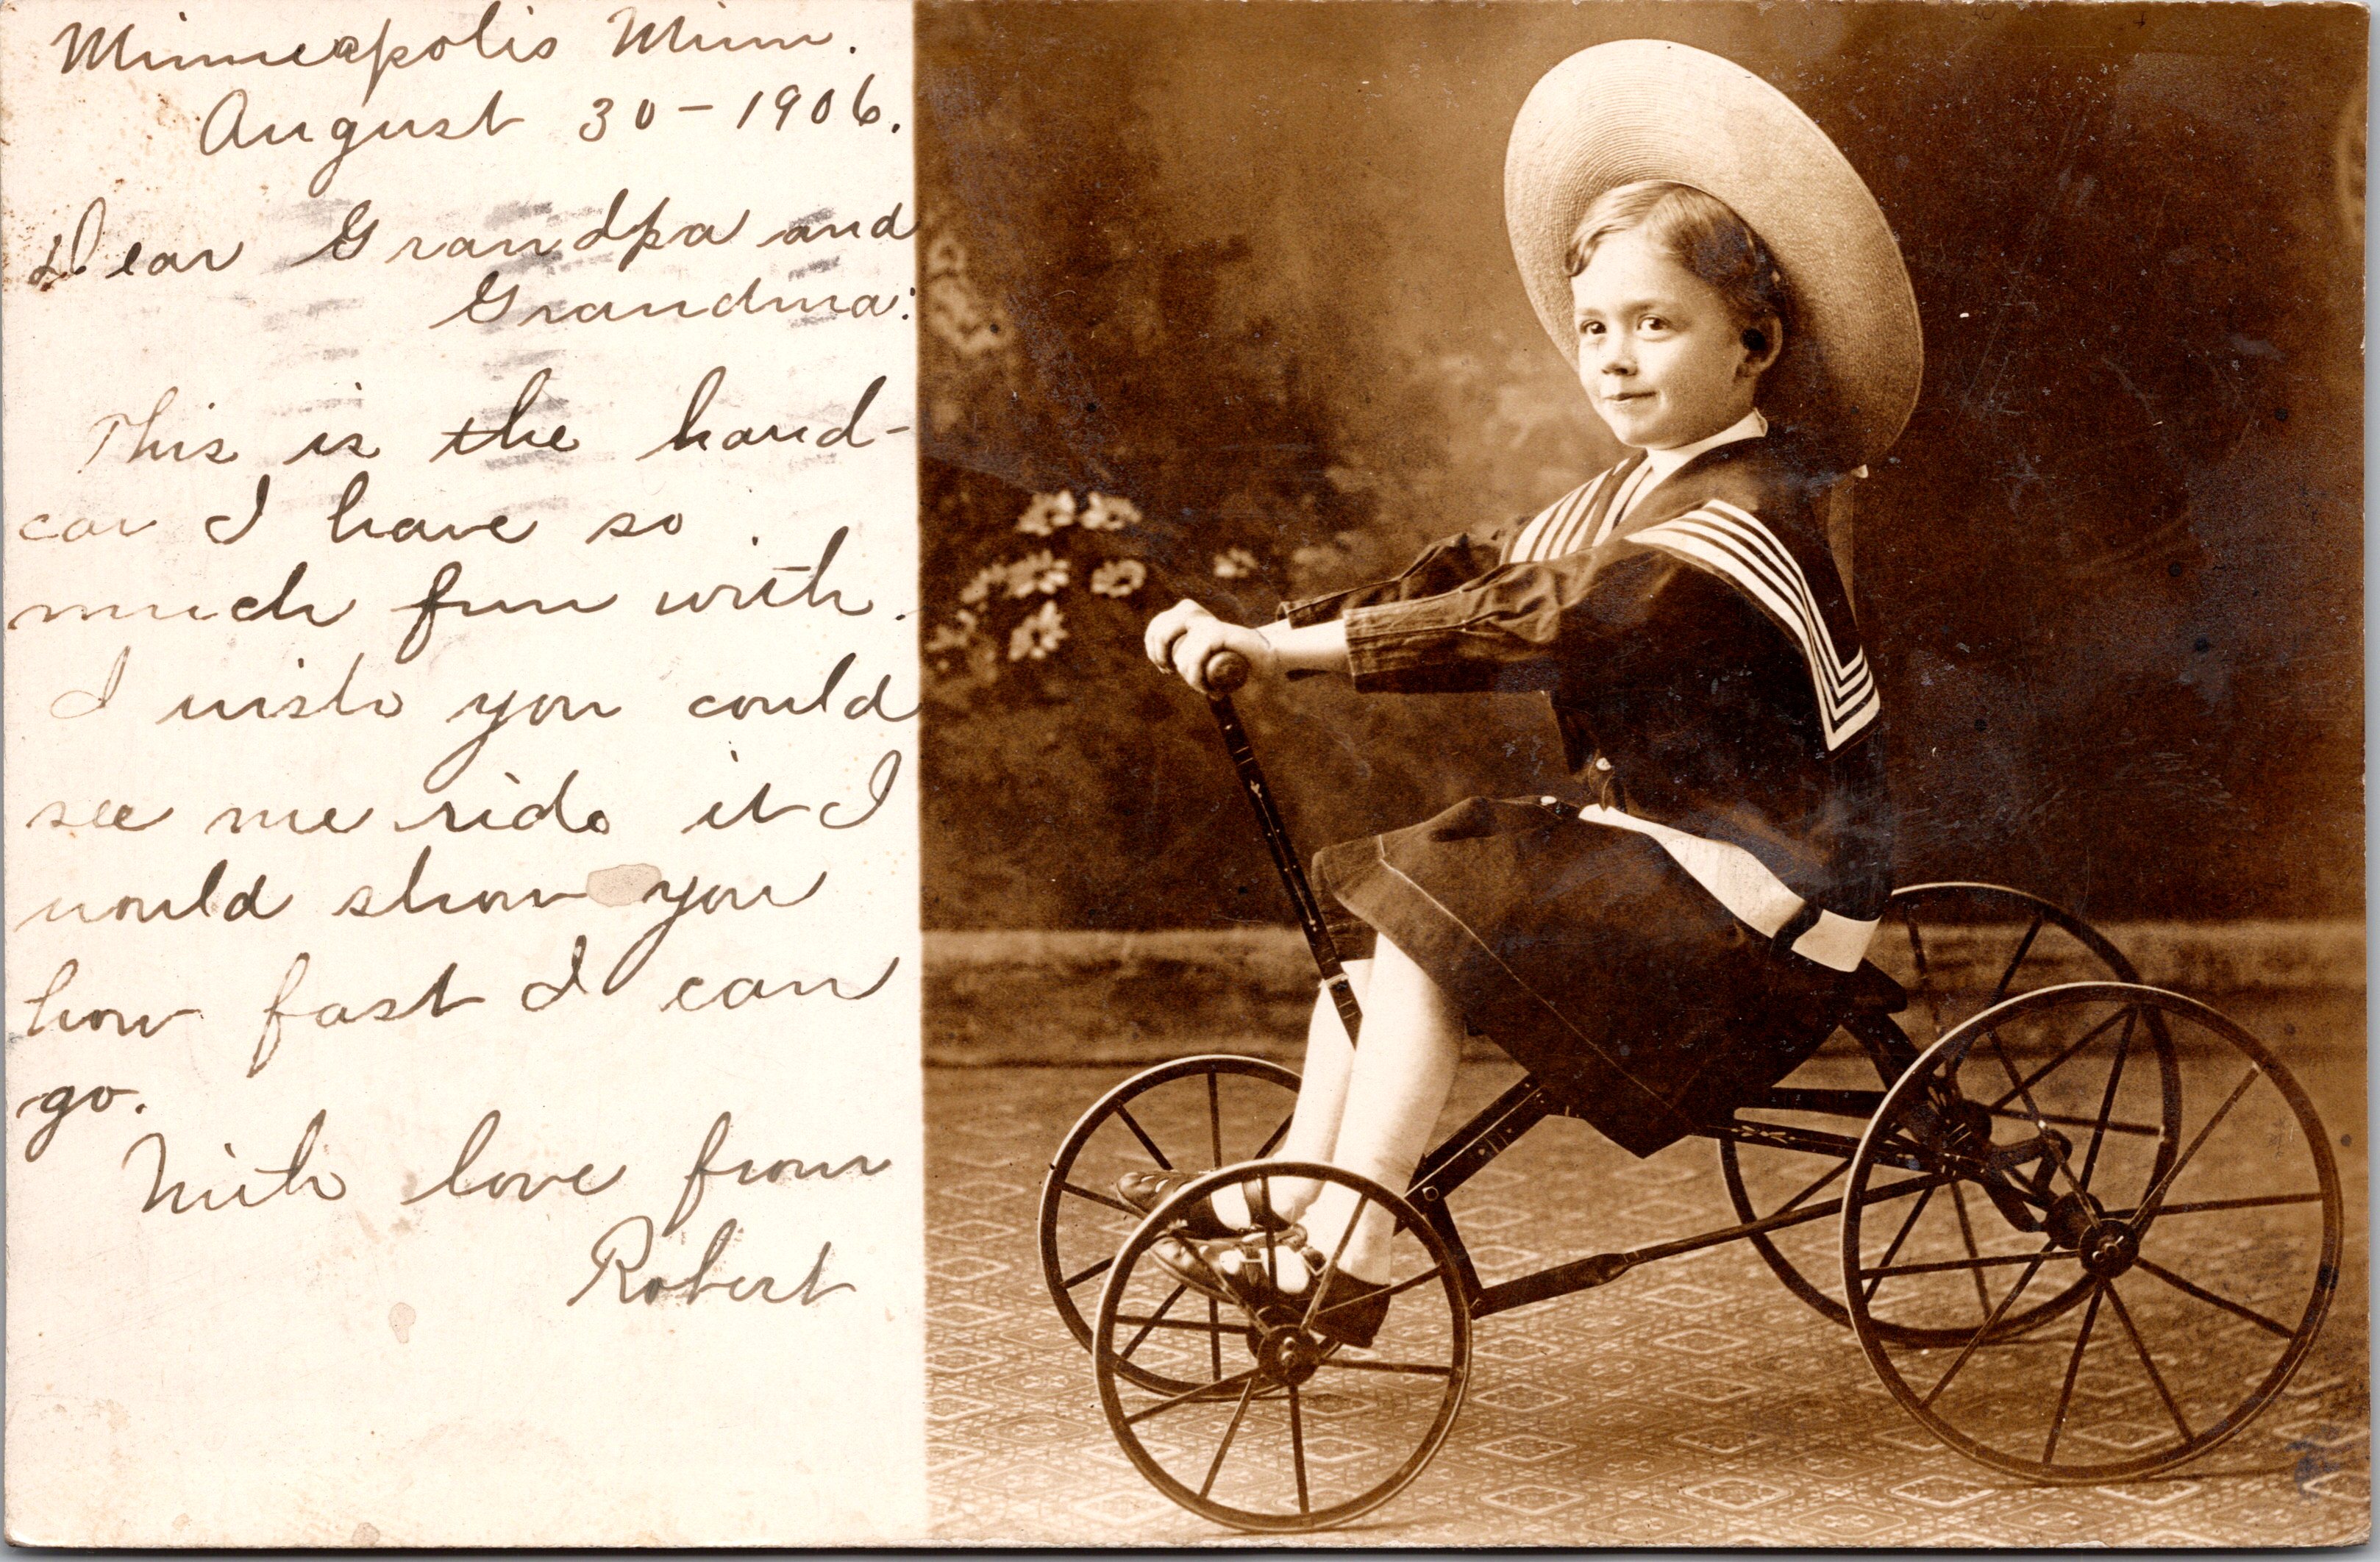 Minneapolis Minn.
August 30-1906.
Dear Grandpa and
Grandma:
This is the hand-
car I have so
much fun with.
I wish you could
see me ride it I
would show you
how fast I can
go.
With love from
Robert